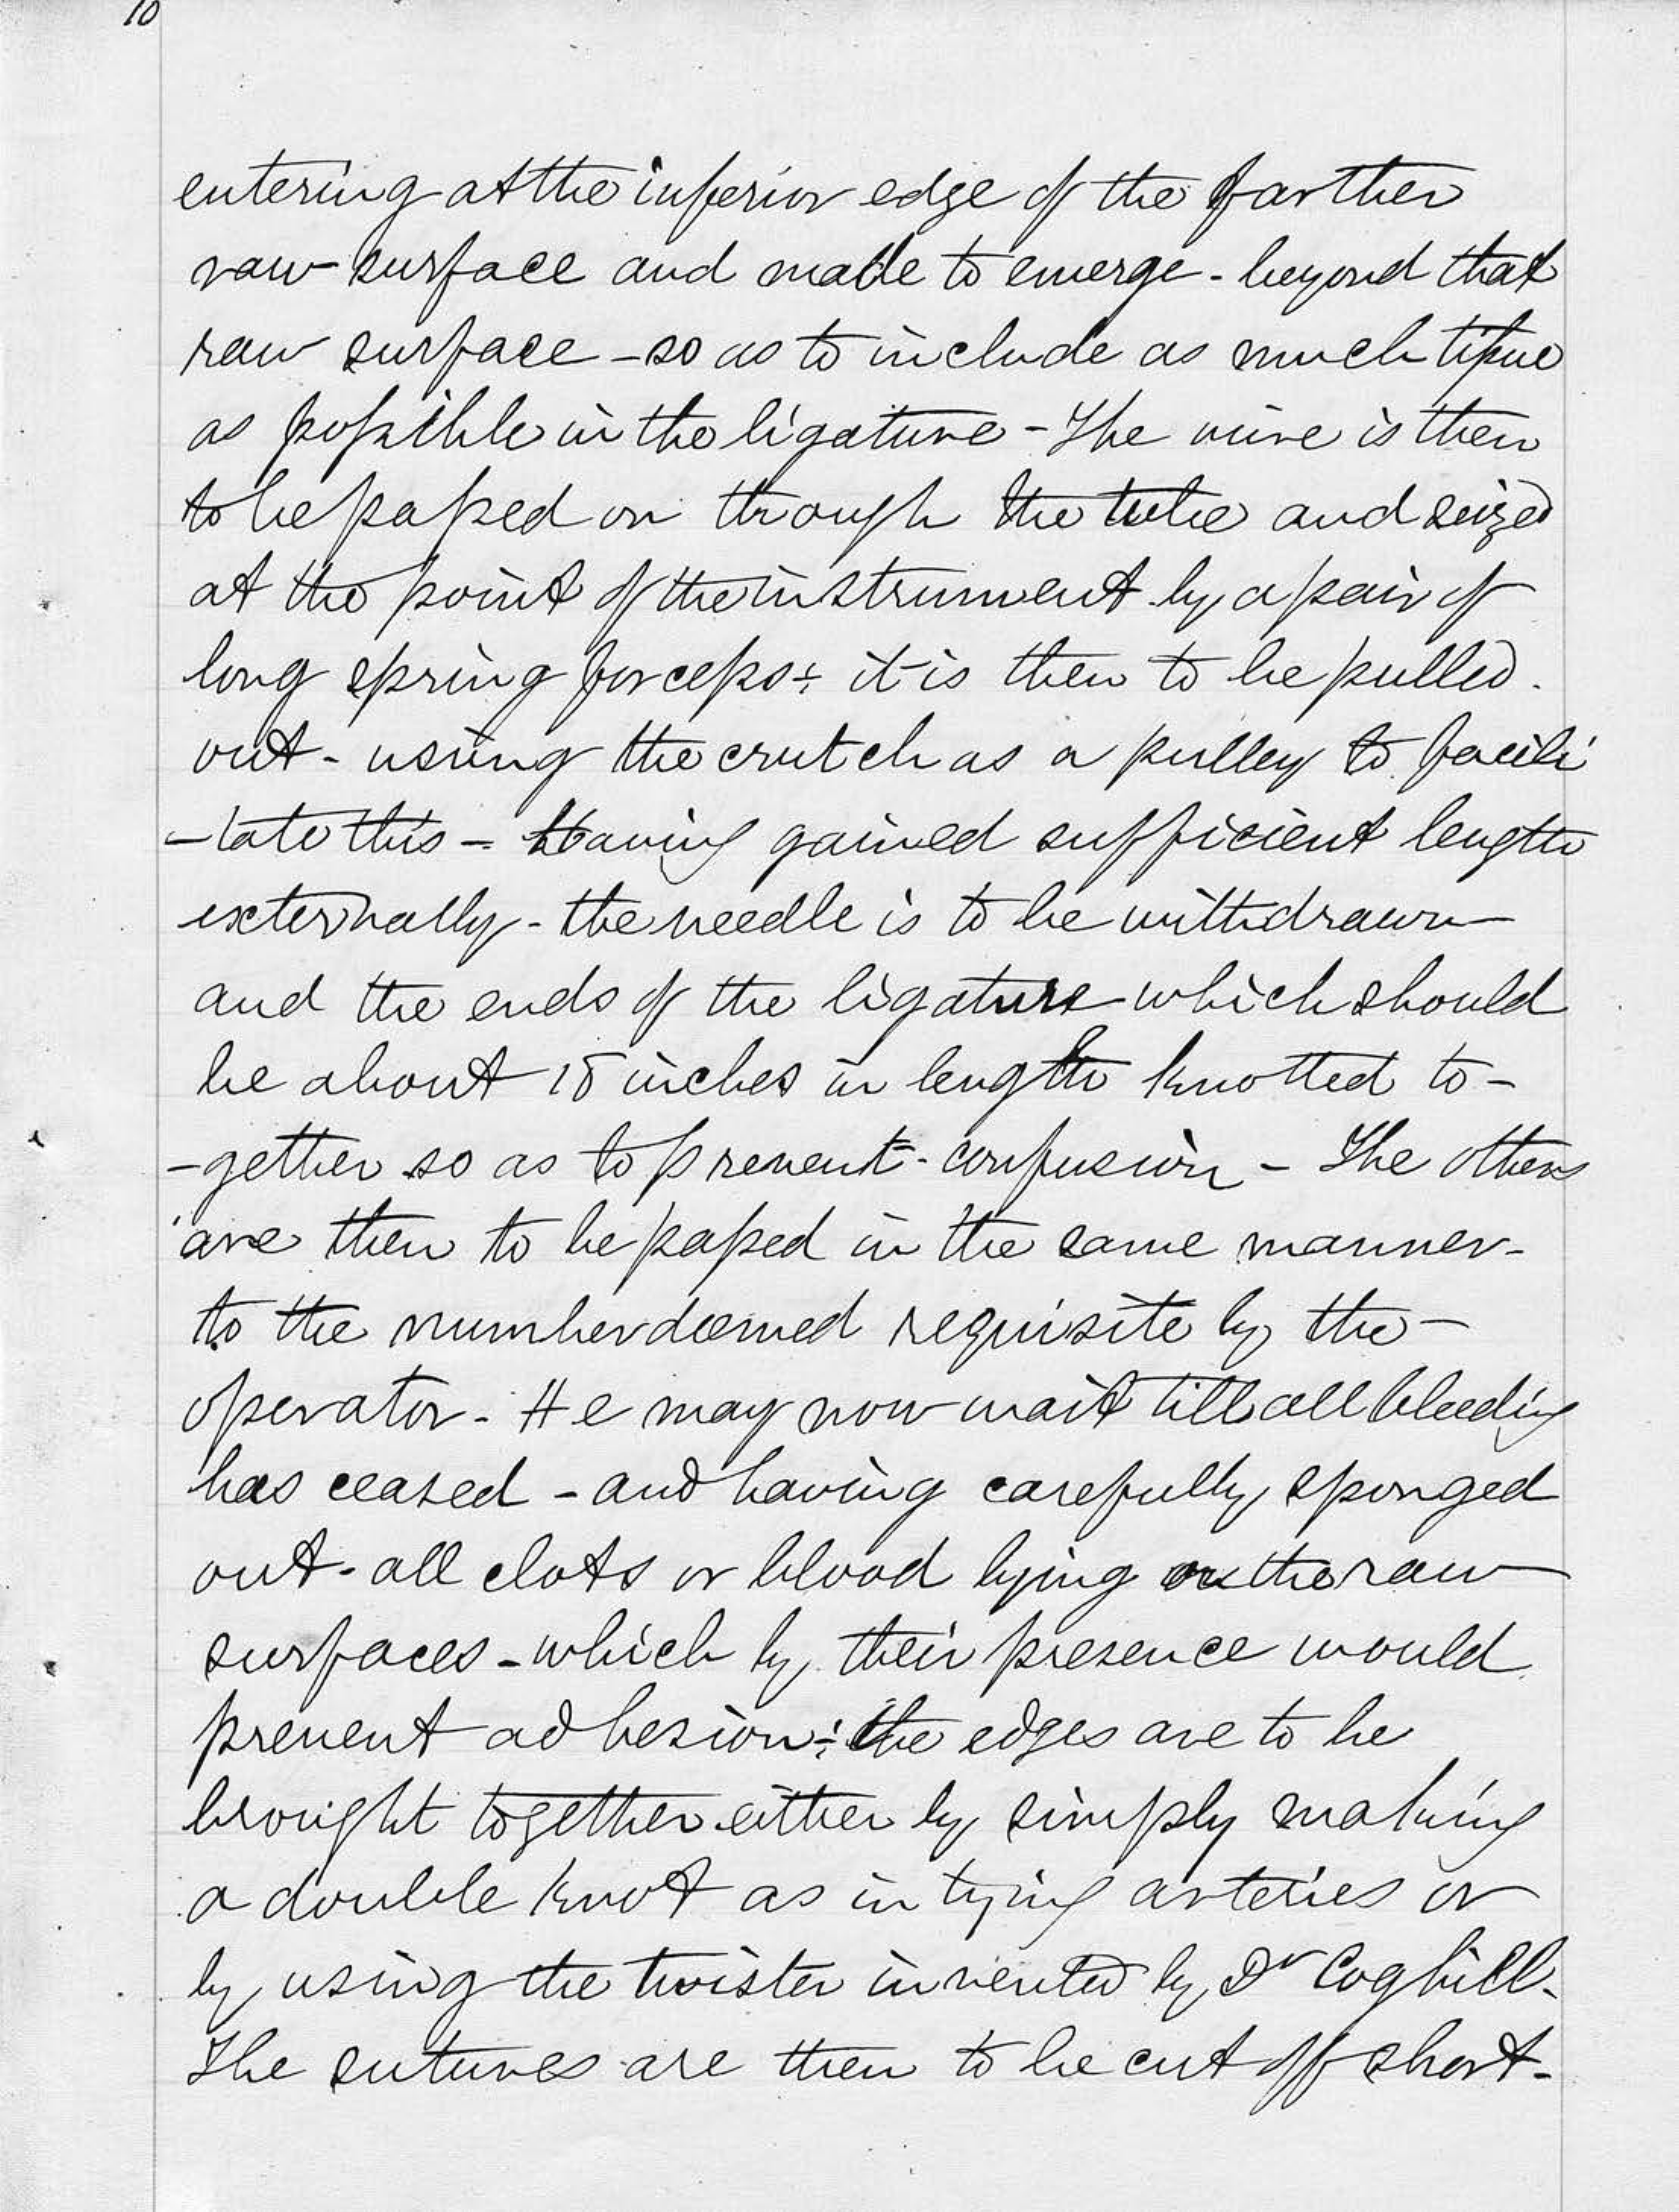 10
entering at the inferior edge of the farther
raw surface and made to emerge - beyond that
raw surface - so as to include as much tissue
as possible in the ligature - The wire is then
to be passed on through the tube and seized
at the point of the instrument by a pair of
long spring forceps -; it is then to be pulled.
out - using the crutch as a pulley to facili
-tate this - Having gained sufficient length
externally - the needle is to be withdrawn
and the ends of the ligature which should
be about 18 inches in length knotted to-
-gether so as to prevent - confusion - The others
are then to be passed in the same manner -
to the number deemed requisite by the -
operator - He may now wait till all bleeding
has ceased - and having carefully sponged
out - all clots or blood lying on the raw
surfaces - which by their presence would
prevent adhesion -: the edges are to be
brought together either by simply making
a double knot as in tying arteries or
by using the twister invented by Dr Coghill -
The sutures are then to be cut off short -